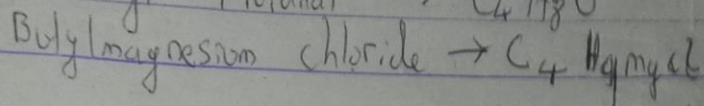 C4 H8 O
Butylmagnesium chloride → C4 H9 mg cl